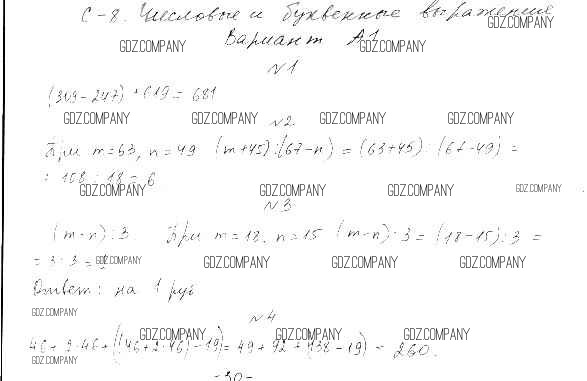 С-8. Числовые и буквенные выражение
GDZ.COMPANY
Вариант А1
GDZ.COMPANY GDZ.COMPANY
№1
(309-247) + 619 = 681
GDZ.COMPANY GDZ.COMPANY GDZ.COMPANY GDZ.COMPANY
№2
При m=63, n=49 (m+45):(67-n) = (63+45):(67-49) =
= 108 : 18 = 6
GDZ.COMPANY GDZ.COMPANY GDZ.COMPANY GDZ.COMPANY
№3
(m-n):3 При m=18, n=15 (m-n):3 = (18-15):3 =
= 3:3 =
GDZ.COMPANY GDZ.COMPANY GDZ.COMPANY GDZ.COMPANY
Ответ: на 1 руб
GDZ.COMPANY
№4
GDZ.COMPANY GDZ.COMPANY GDZ.COMPANY
46 + 2·46 + ((46+2·46)-19) = 49 + 92 + (138-19) = 260.
GDZ.COMPANY
-30-